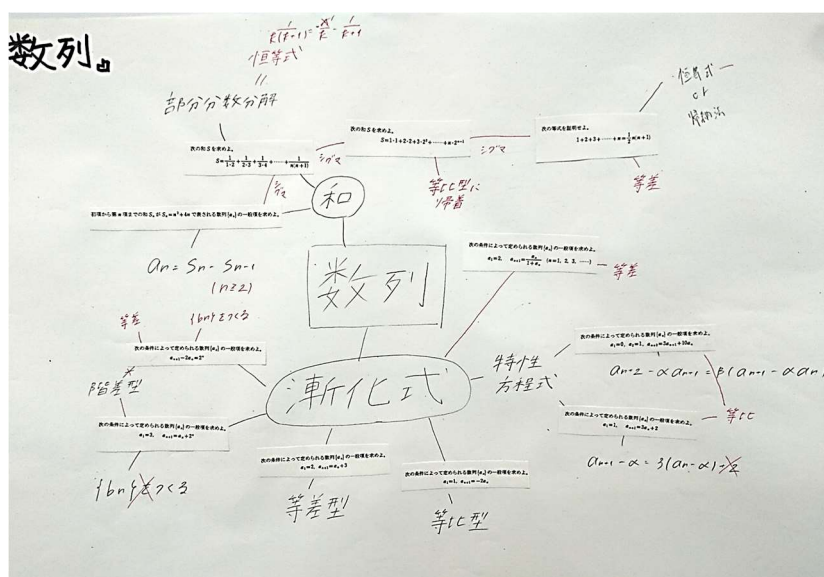 数列。
1/k(k+1) = 1/k - 1/k+1
恒等式
=
部分分数分解
次の和Sを求めよ。
S=1/1·2+1/2·3+1/3·4+……+1/n(n+1)
シグマ
次の和Sを求めよ。
S=1·1+2·2+3·2²+……+n·2ⁿ⁻¹
シグマ
次の等式を証明せよ。
1+2+3+……+n=1/2n(n+1)
恒等式
or
帰納法
等比型に
帰着
等差
シグマ
和
初項から第n項までの和SₙがSₙ=n²+4nで表される数列{aₙ}の一般項を求めよ。
an = Sn - Sn-1
(n≧2)
数列
次の条件によって定められる数列{aₙ}の一般項を求めよ。
a₁=2, aₙ₊₁=aₙ/1+aₙ (n=1, 2, 3, ……)
等差
等差
{bn}をつくる
次の条件によって定められる数列{aₙ}の一般項を求めよ。
aₙ₊₁-2aₙ=2ⁿ
階差型
次の条件によって定められる数列{aₙ}の一般項を求めよ。
a₁=3, aₙ₊₁=aₙ+2ⁿ
{bn}をつくる
漸化式
特性
方程式
次の条件によって定められる数列{aₙ}の一般項を求めよ。
a₁=0, a₂=1, aₙ₊₂=3aₙ₊₁+10aₙ
an+2 - αan+1 = β(an+1 - αan)
等比
次の条件によって定められる数列{aₙ}の一般項を求めよ。
a₁=1, aₙ₊₁=3aₙ+2
an+1 - α = 3(an - α) + 2
次の条件によって定められる数列{aₙ}の一般項を求めよ。
a₁=2, aₙ₊₁=aₙ+3
等差型
次の条件によって定められる数列{aₙ}の一般項を求めよ。
a₁=1, aₙ₊₁=-2aₙ
等比型